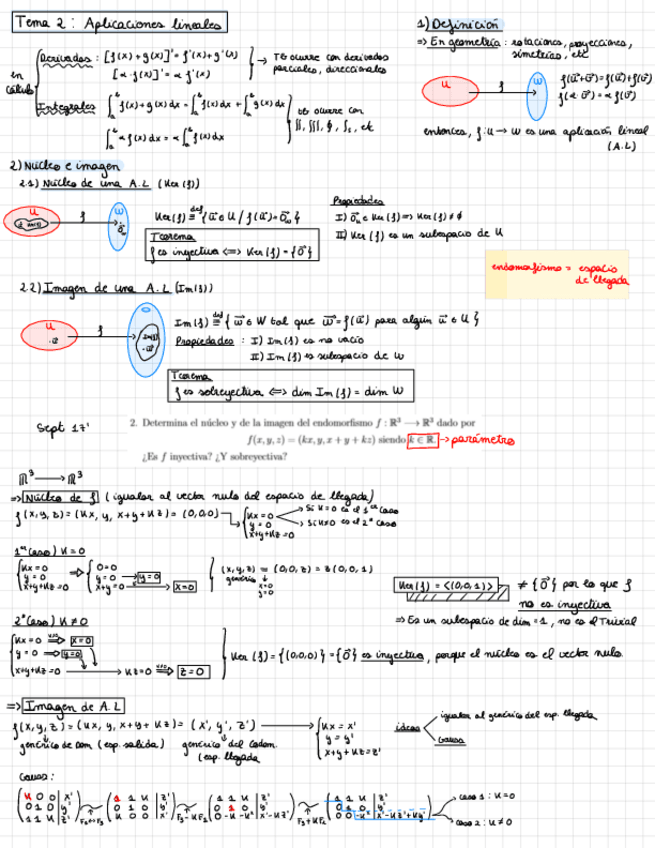 Tema 2: Aplicaciones lineales
en cálculo
Derivadas: [f(x)+g(x)]' = f'(x)+g'(x)
[α·f(x)]' = α f'(x)
→ Tb ocurre con derivadas parciales, direccionales
Integrales ∫ₐᵇ f(x)+g(x)dx = ∫ₐᵇ f(x)dx + ∫ₐᵇ g(x)dx
∫ₐᵇ α f(x)dx = α ∫ₐᵇ f(x)dx
tb ocurre con ∬, ∭, ∮, ∫ₛ, etc
1) Definición
=> En geometría: rotaciones, proyecciones, simetrías, etc
U f W
f(u⃗+v⃗)=f(u⃗)+f(v⃗)
f(α v⃗)=α f(v⃗)
entonces, f:u→w es una aplicación lineal (A.L)
2) Núcleo e imagen
2.1) Núcleo de una A.L (Ker(f))
U f W
Ker(f) ≝ {u⃗ ∈ U / f(u⃗)=0⃗w}
Teorema
f es inyectiva <=> Ker(f) = {0⃗}
Propiedades
I) 0⃗u ∈ Ker(f) => Ker(f) ≠ ∅
II) Ker(f) es un subespacio de U
endomorfismo = espacio de llegada
2.2) Imagen de una A.L (Im(f))
U f W
Im(f) ≝ { w⃗ ∈ W tal que w⃗=f(u⃗) para algún u⃗ ∈ U }
Propiedades: I) Im(f) es no vacío
II) Im(f) es subespacio de W
Teorema
f es sobreyectiva <=> dim Im(f) = dim W
Sept 17'
2. Determina el núcleo y de la imagen del endomorfismo f : ℝ³ → ℝ³ dado por
f(x, y, z) = (kx, y, x + y + kz) siendo k ∈ ℝ. → parámetro
¿Es f inyectiva? ¿Y sobreyectiva?
ℝ³ → ℝ³
=> Núcleo de f (igualar al vector nulo del espacio de llegada)
f(x,y,z) = (kx, y, x+y+kz) = (0,0,0)
kx=0
y=0
x+y+kz=0
Si k=0 es el 1er caso
Si k≠0 es el 2º caso
1er Caso) k=0
kx=0
y=0
x+y+kz=0
=>
0=0
y=0 → y=0
x+y=0 → x=0
(x,y,z) = (0,0,z) = z(0,0,1)
genérico x=0 y=0
Ker(f) = <(0,0,1)> ≠ {0⃗} por lo que f no es inyectiva
=> Es un subespacio de dim=1, no es el Trivial
2º Caso) k≠0
kx=0 => x=0
y=0 => y=0
x+y+kz=0 → kz=0 => z=0
Ker(f) = {(0,0,0)} = {0⃗} es inyectiva, porque el núcleo es el vector nulo.
=> Imagen de A.L
f(x,y,z) = (kx, y, x+y+kz) = (x', y', z')
genérico de dom (esp. salida)
genérico del codom. (esp. llegada
kx = x'
y = y'
x+y+kz=z'
ideas
igualar al genérico del esp. llegada
Gauss
Gauss:
(k 0 0 | x'
0 1 0 | y'
1 1 k | z')
F₁↔F₃
(1 1 k | z'
0 1 0 | y'
k 0 0 | x')
F₃-kF₁
(1 1 k | z'
0 1 0 | y'
0 -k -k² | x'-kz')
F₃+kF₂
(1 1 k | z'
0 1 0 | y'
0 0 -k² | x'-kz'+ky')
caso 1: k=0
caso 2: k≠0